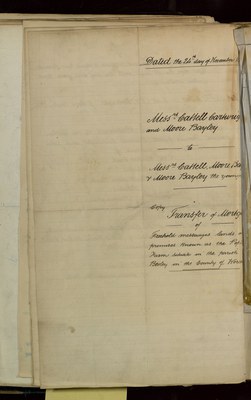 Dated the 24th day of November
Messrs Cattell
and Moore Bayley
to
Messrs Cattell, Moore Ba
& Moore Bayley the
Copy
Transfer of Mortg
of
Freehold messuages lands
premises known as the
Farm situate in the parish
in the County of